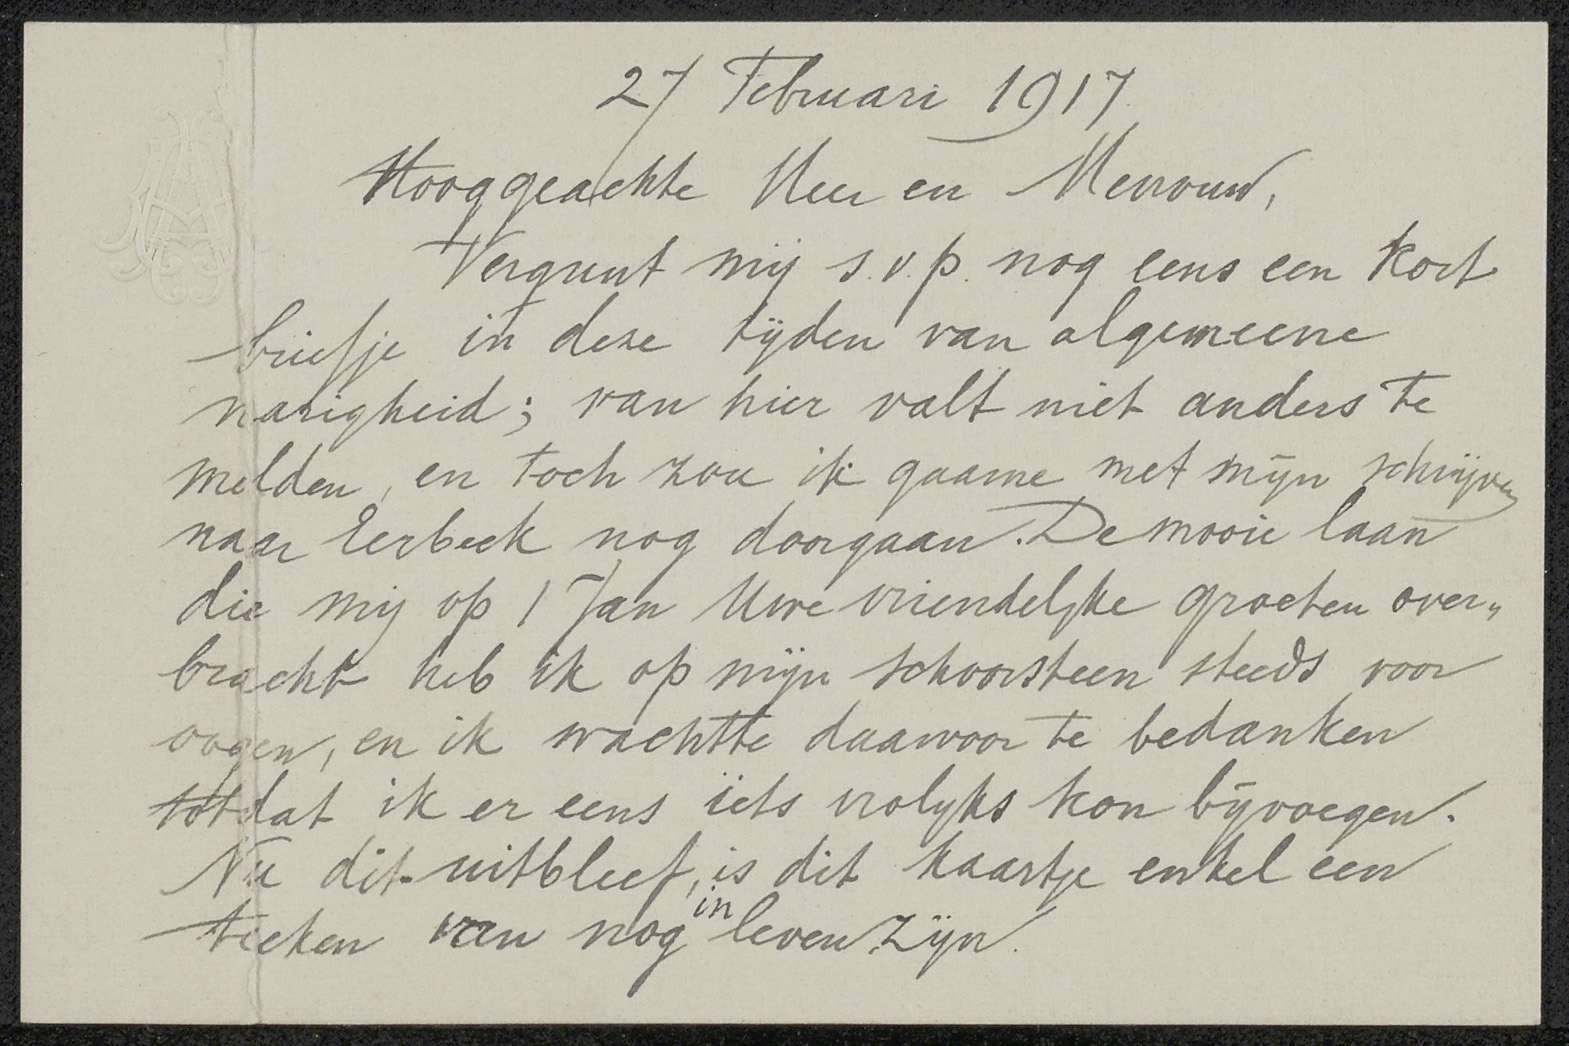 27 Februari 1917.
Hooggeachte Heer en Mevrouw,
Vergunt mij s.v.p. nog eens een kort
briefje in deze tijden van algemeene
narigheid; van hier valt niet anders te
melden, en toch zou ik gaarne met mijn schrijven
naar Eerbeek nog doorgaan. De mooie laan
die mij op 1 Jan Uwe vriendelijke groeten over„
bracht heb ik op mijn schoorsteen steeds voor
oogen, en ik wachtte daarvoor te bedanken
totdat ik er eens iets vrolijks kon bijvoegen.
Nu dit uitbleef, is dit kaartje enkel een
teeken van nog in leven zijn.